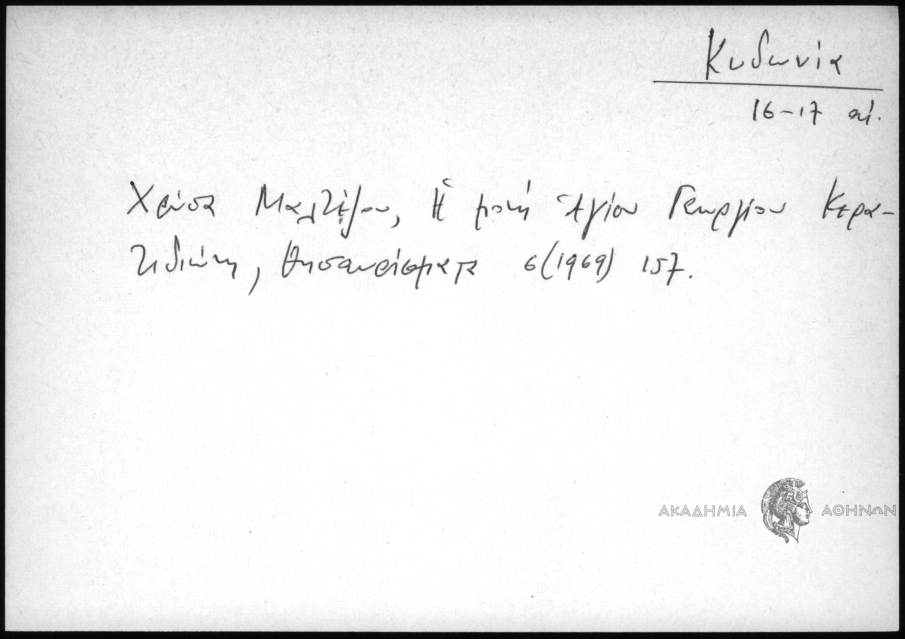 Κυδωνία
16-17 αἰ.
Χρύσα Μαλτέζου, Ἡ μονή Ἁγίου Γεωργίου Κερα-
τιδιώτη, Θησαυρίσματα 6(1969) 157.
ΑΚΑΔΗΜΙΑ ΑΘΗΝΩΝ